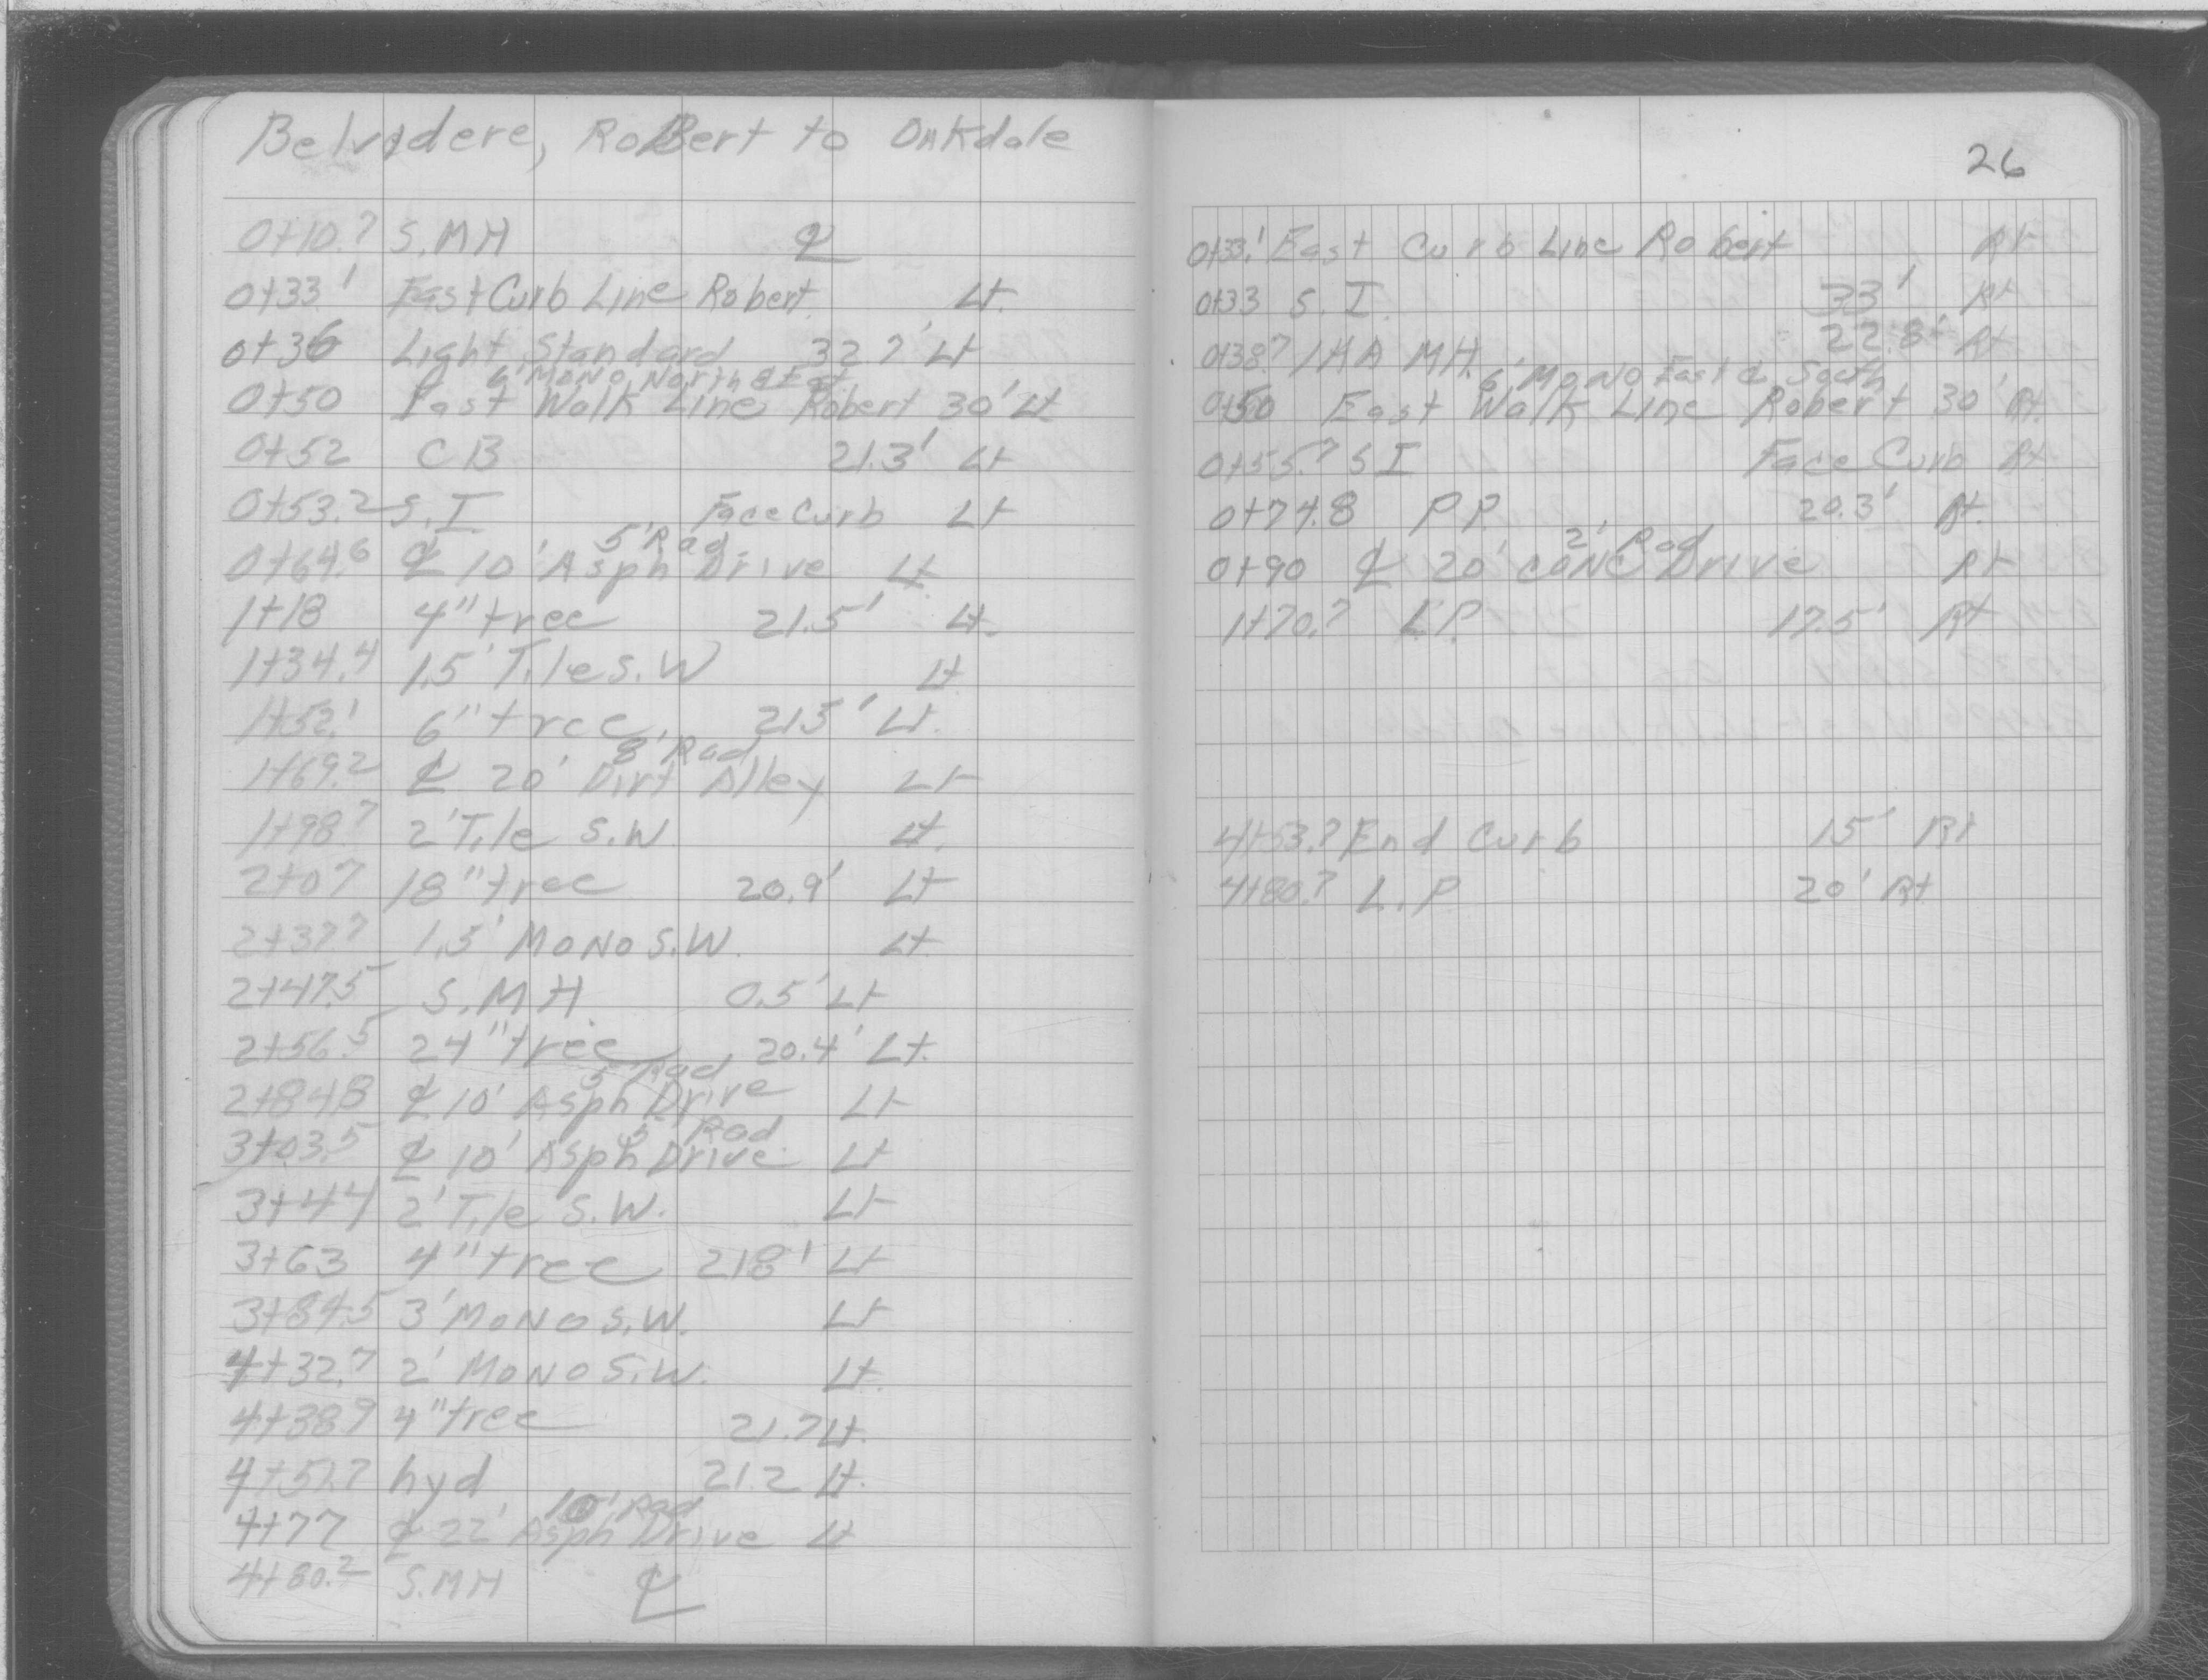 Belvidere, Robert to Oakdale
0+10.7 S.MH ℄
0+33' East Curb Line Robert Lt.
0+36 Light Standard 32.7' Lt
6' Mono North & East
0+50 East Walk Line Robert 30' Lt
0+52 CB 21.3' Lt
0+53.2 S.I Face Curb Lt
5' Rad.
0+64.6 ℄ 10' Asph Drive Lt.
1+18 4" tree 21.5' Lt.
1+34.4 1.5' Tile S.W Lt
1+52.1 6" tree 21.5' Lt.
8' Rad
1+69.2 ℄ 20' Dirt Alley Lt
1+98.7 2' Tile S.W. Lt.
2+07 18" tree 20.9' Lt
2+37.7 1.5' Mono S.W. Lt
2+47.5 S.MH. 0.5' Lt
2+56.5 24" tree 20.4' Lt.
5' Rad
2+84.8 ℄ 10' Asph Drive Lt
5' Rad
3+03.5 ℄ 10' Asph Drive Lt
3+44 2' Tile S.W. Lt
3+63 4" tree 21.8' Lt
3+84.5 3' Mono S.W. Lt
4+32.7 2' Mono S.W. Lt.
4+38.9 4" tree 21.7 Lt.
4+51.7 hyd 21.2 Lt.
10' Rad
4+77 ℄ 22' Asph Drive Lt
4+80.2 S.MH ℄
26
0+33.1 East Curb Line Robert Rt
0+33 S.I. 33' Rt
0+38.7 MH. 22.8' Rt
6' Mono East & South
0+50 East Walk Line Robert 30' Rt.
0+55.7 SI Face Curb Rt
0+74.8 P.P. 20.3' Rt.
2' Rad
0+90 ℄ 20' Conc Drive Rt
1+70.7 L.P. 17.5' Rt
4+53.7 End Curb 15' Rt
4+80.7 L.P 20' Rt